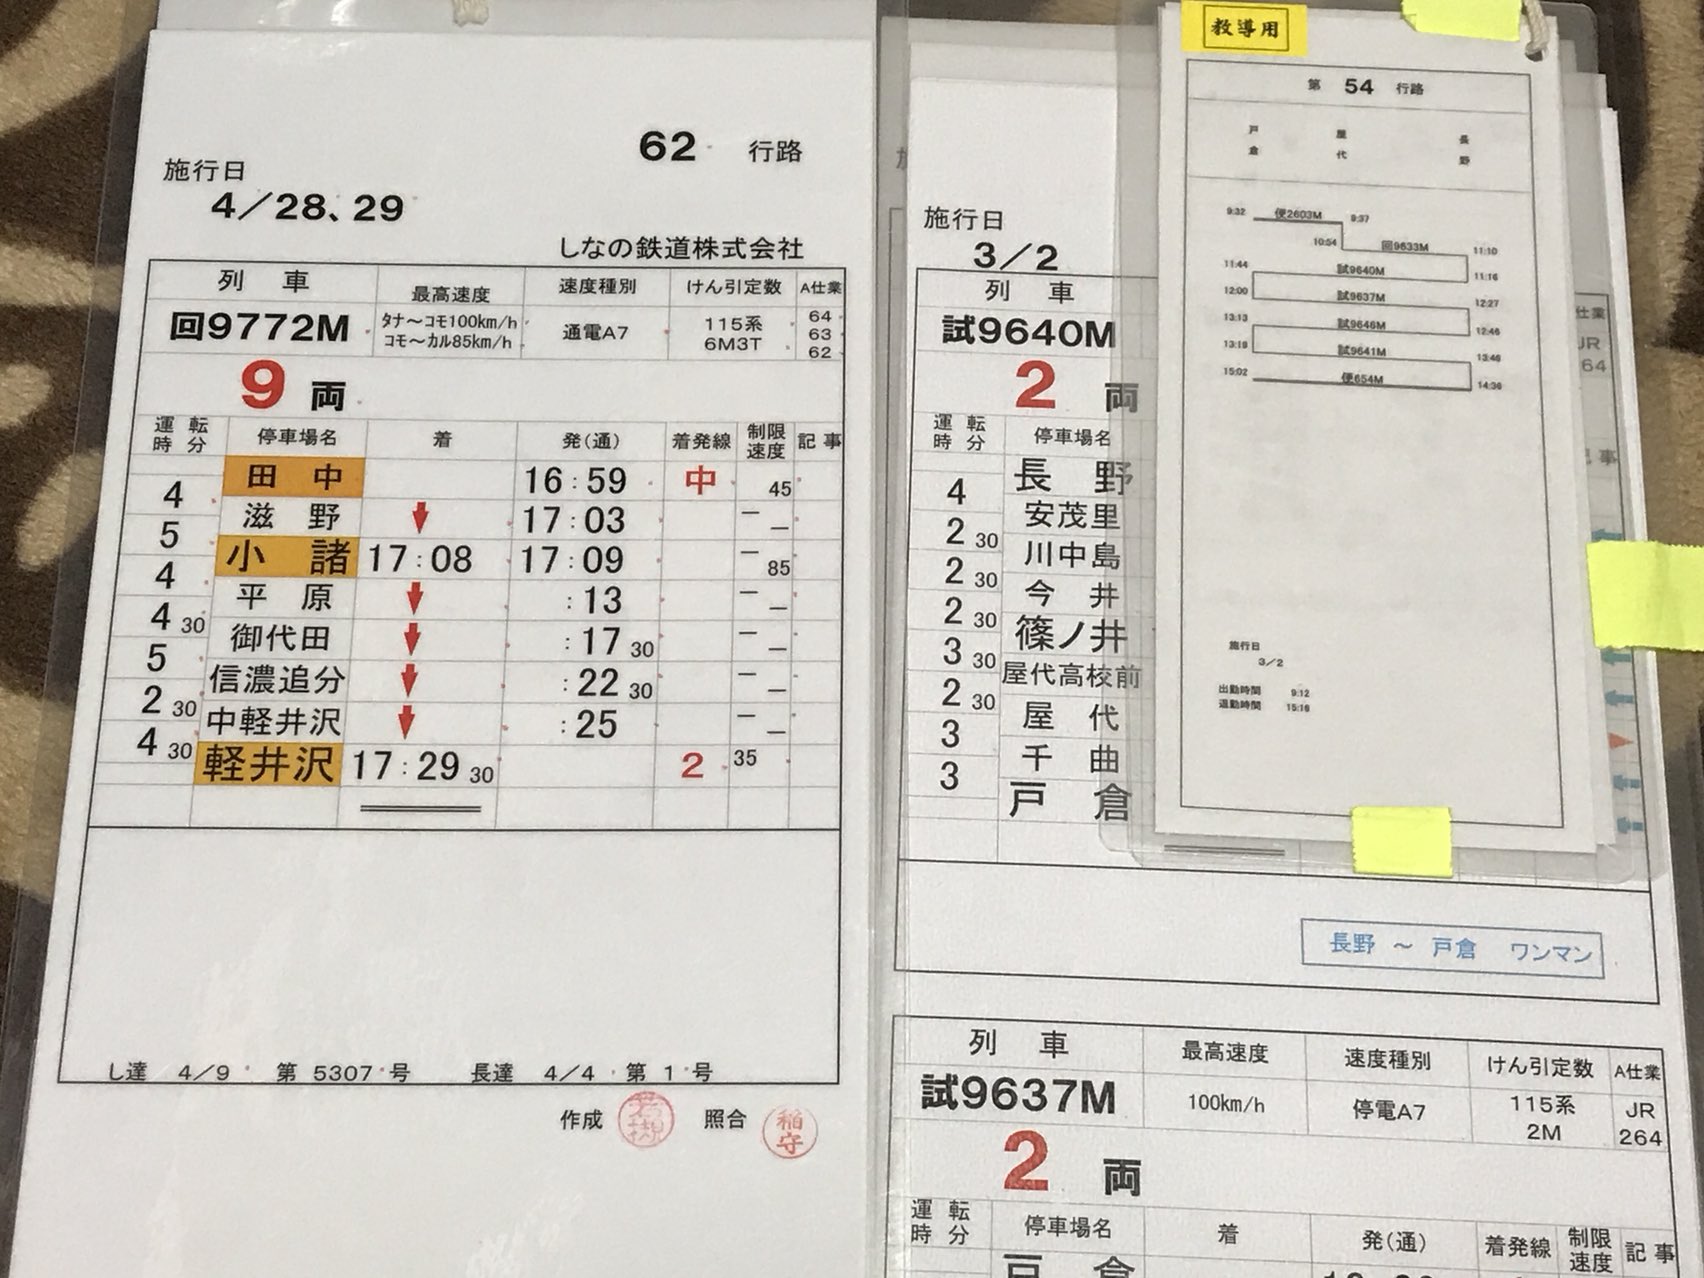 62 行路
施行日
4／28、29
しなの鉄道株式会社
列 車 最高速度 速度種別 けん引定数 A仕業
回9772M タナ～コモ100km/h コモ～カル85km/h 通電A7 115系 6M3T 64 63 62
9 両
運転時分 停車場名 着 発(通) 着発線 制限速度 記事
田中 16:59 中 45
4
滋野 ↓ 17:03 － －
5
小諸 17:08 17:09 － 85
4
平原 ↓ :13 － －
4 30
御代田 ↓ :17 30 － －
5
信濃追分 ↓ :22 30 － －
2 30
中軽井沢 ↓ :25 － －
4 30
軽井沢 17:29 30 2 35
し達 4/9 第 5307 号 長達 4/4 第 1 号
作成 照合 稲守
施行日
3／2
列 車
試9640M
2 両
運転時分 停車場名
長野
4
安茂里
2 30
川中島
2 30
今井
2 30
篠ノ井
3 30
屋代高校前
2 30
屋代
3
千曲
3
戸倉
長野 ～ 戸倉 ワンマン
列 車 最高速度 速度種別 けん引定数 A仕業
試9637M 100km/h 停電A7 115系 2M JR 264
2 両
運転時分 停車場名 着 発(通) 着発線 制限速度 記事
戸倉
教導用
第 54 行路
戸倉 屋代 長野
9:32 便2603M 9:37
10:54 回9633M 11:10
11:44 試9640M 11:16
12:00 試9637M 12:27
13:13 試9646M 12:46
13:19 試9641M 13:46
15:02 便654M 14:36
施行日
3／2
出勤時間 9:12
退勤時間 15:16
仕業
JR
64
記事